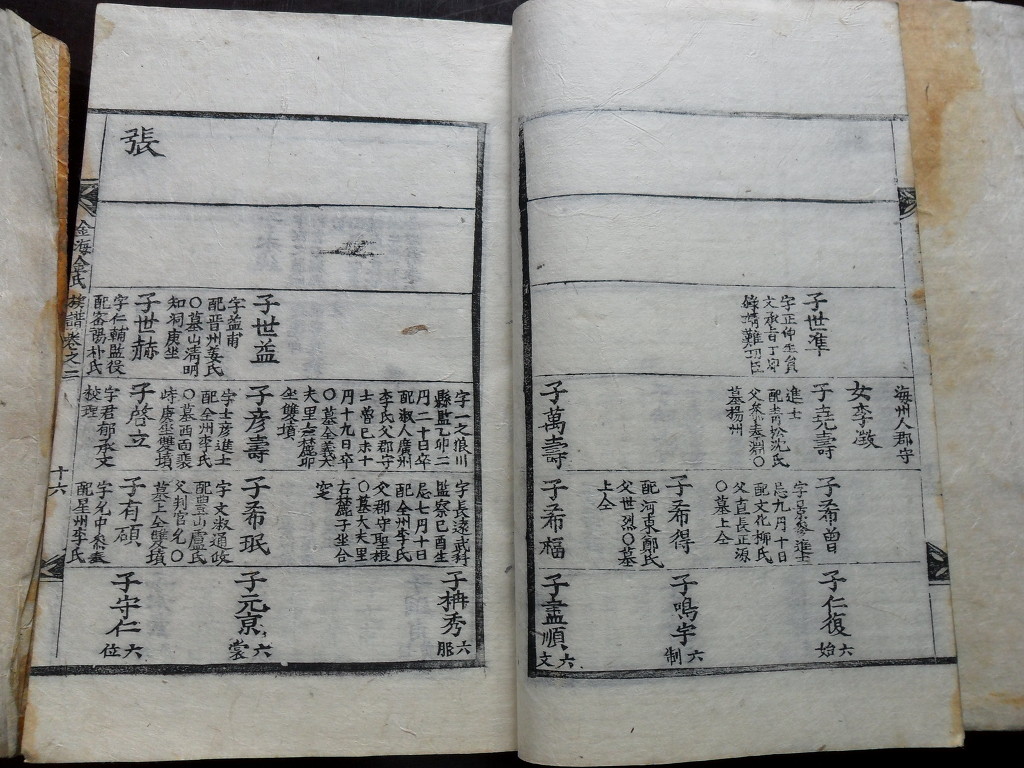 子世準
字正仲生員
文承旨丁卯
錄靖難功臣
海州人郡守
女李㵢
子堯壽
進士
配靑松沈氏
墓楊州
子希曾
忌九月十日
配文化柳氏
父直長正源
〇墓上仝
子希得
配河東鄭氏
父世烈〇墓
上仝
子仁復
六始
子鳴宇
六制
子萬壽
子希福
子盡順
六文
字一之狼川
縣監乙卯二
月二十日卒
配淑人廣州
李氏父郡守
士曾己未十
月十九日卒
〇墓金義大
夫里古麓卯
坐雙墳
字長遠武科
監察己酉生
忌七月十日
配全州李氏
父郡守聖根
〇墓大夫里
右麓子坐合
窆
秀
六服
子世益
字益甫
配晋州姜氏
〇墓山淸明
知祠庚坐
子彦壽
字士彦進士
配全州李氏
〇墓酉面裵
峙庚坐雙墳
子希珉
字文淑通政
配豊山盧氏
父判官允〇
墓上仝雙墳
子元京
六裳
張
子世赫
字仁輔監役
配密陽朴氏
子啓立
字君郁承文
校理
子有碩
配星州李氏
子守仁
六位
金海金氏族譜卷之二
十六